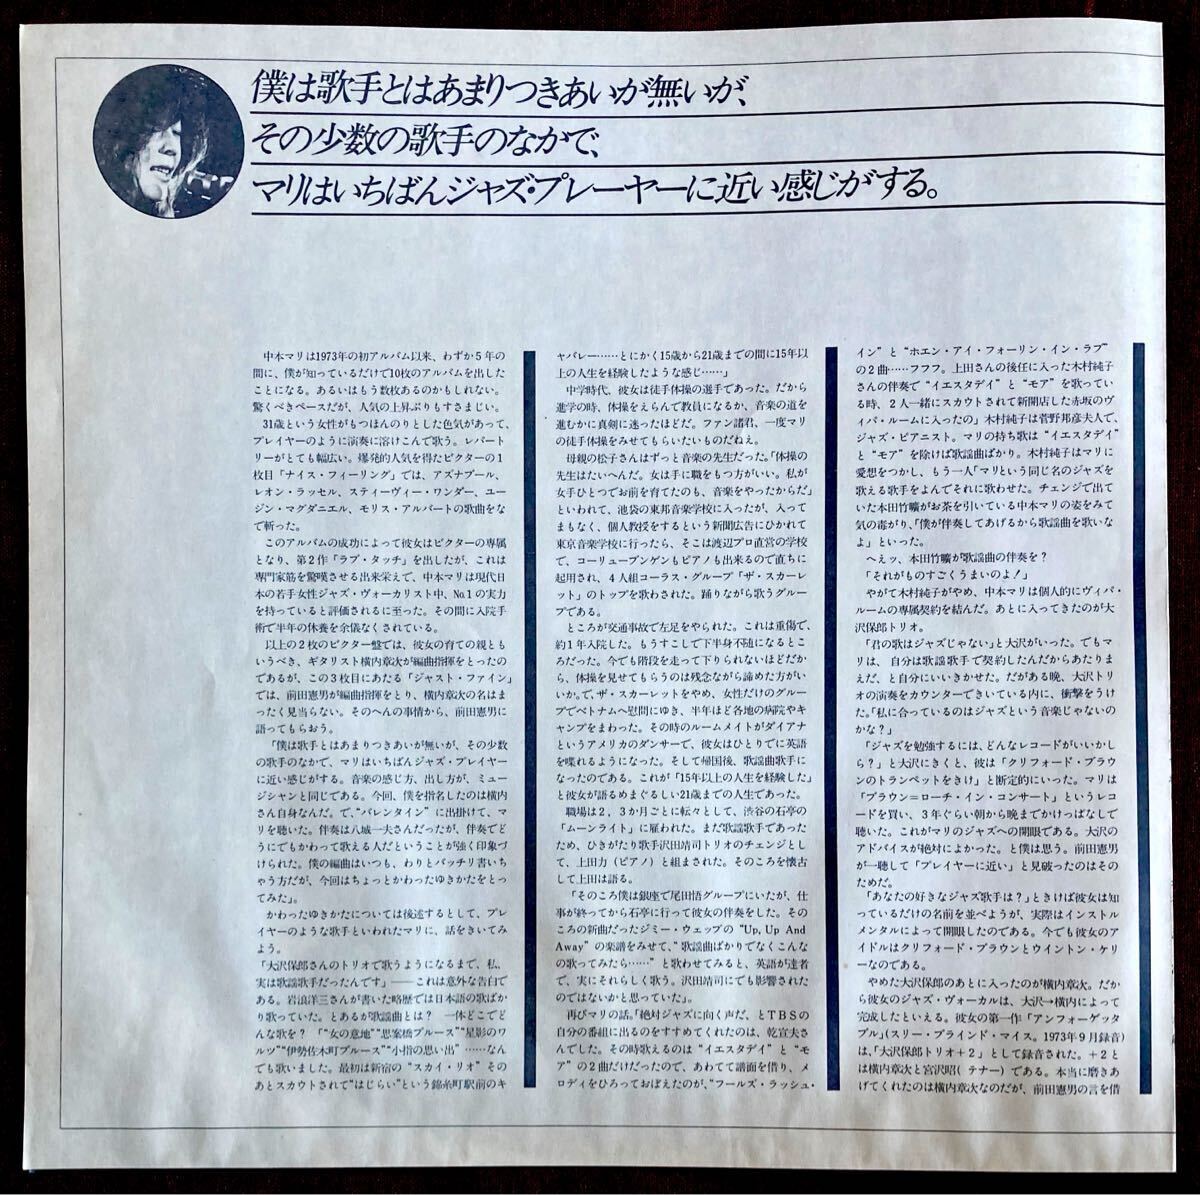 僕は歌手とはあまりつきあいが無いが、
その少数の歌手のなかで、
マリはいちばんジャズ・プレーヤーに近い感じがする。
中本マリは1973年の初アルバム以来、わずか5年の
間に、僕が知っているだけで10枚のアルバムを出した
ことになる。あるいはもう数枚あるのかもしれない。
驚くべきペースだが、人気の上昇ぶりもすさまじい。
31歳という女性がもつほんのりとした色気があって、
プレイヤーのように演奏に溶けこんで歌う。レパート
リーがとても幅広い。爆発的人気を得たビクターの1
枚目「ナイス・フィーリング」では、アズナブール、
レオン・ラッセル、スティーヴィー・ワンダー、ユー
ジン・マグダニエル、モリス・アルバートの歌曲をな
で斬った。
このアルバムの成功によって彼女はビクターの専属
となり、第2作「ラブ・タッチ」を出したが、これは
専門家筋を驚嘆させる出来栄えで、中本マリは現代日
本の若手女性ジャズ・ヴォーカリスト中、No.1の実力
を持っていると評価されるに至った。その間に入院手
術で半年の休養を余儀なくされている。
以上の2枚のビクター盤では、彼女の育ての親とも
いうべき、ギタリスト横内章次が編曲指揮をとったの
であるが、この3枚目にあたる「ジャスト・ファイン」
では、前田憲男が編曲指揮をとり、横内章次の名はま
ったく見当らない。そのへんの事情から、前田憲男に
語ってもらおう。
「僕は歌手とはあまりつきあいが無いが、その少数
の歌手のなかで、マリはいちばんジャズ・プレイヤー
に近い感じがする。音楽の感じ方、出し方が、ミュー
ジシャンと同じである。今回、僕を指名したのは横内
さん自身なんだ。で、“バレンタイン”に出掛けて、マ
リを聴いた。伴奏は八城一夫さんだったが、伴奏でど
うにでもかわって歌える人だということが強く印象づ
けられた。僕の編曲はいつも、わりとバッチリ書いち
ゃう方だが、今回はちょっとかわったゆきかたをとっ
てみた」。
かわったゆきかたについては後述するとして、プレ
イヤーのような歌手といわれたマリに、話をきいてみ
よう。
「大沢保郎さんのトリオで歌うようになるまで、私、
実は歌謡歌手だったんです」——これは意外な告白で
ある。岩浪洋三さんが書いた略歴では日本語の歌ばか
り歌っていた。とあるが歌謡曲とは?　一体どこでど
んな歌を?　「“女の意地”“思案橋ブルース”“星影のワ
ルツ”“伊勢佐木町ブルース”“小指の思い出”……なん
でも歌いました。最初は新宿の“スカイ・リオ”その
あとスカウトされて“はじらい”という錦糸町駅前のキ
ャバレー……とにかく15歳から21歳までの間に15年以
上の人生を経験したような感じ……」
中学時代、彼女は徒手体操の選手であった。だから
進学の時、体操をえらんで教員になるか、音楽の道を
進むかに真剣に迷ったほどだ。ファン諸君、一度マリ
の徒手体操をみせてもらいたいものだねぇ。
母親の松子さんはずっと音楽の先生だった。「体操の
先生はたいへんだ。女は手に職をもつ方がいい。私が
女手ひとつでお前を育てたのも、音楽をやったからだ」
といわれて、池袋の東邦音楽学校に入ったが、入って
まもなく、個人教授をするという新聞広告にひかれて
東京音楽学校に行ったら、そこは渡辺プロ直営の学校
で、コーリューブンゲンもピアノも出来るので直ちに
起用され、4人組コーラス・グループ「ザ・スカーレ
ット」のトップを歌わされた。踊りながら歌うグルー
プである。
ところが交通事故で左足をやられた。これは重傷で、
約1年入院した。もうすこしで下半身不随になるとこ
ろだった。今でも階段を走って下りられないほどだか
ら、体操を見せてもらうのは残念ながら諦めた方がい
いか。で、ザ・スカーレットをやめ、女性だけのグルー
プでベトナムへ慰問にゆき、半年ほど各地の病院やキ
ャンプをまわった。その時のルームメイトがダイアナ
というアメリカのダンサーで、彼女はひとりでに英語
を喋れるようになった。そして帰国後、歌謡曲歌手に
なったのである。これが「15年以上の人生を経験した」
と彼女が語るめまぐるしい21歳までの人生であった。
職場は2,3か月ごとに転々として、渋谷の石亭の
「ムーンライト」に雇われた。まだ歌謡歌手であった
ため、ひきがたり歌手沢田靖司トリオのチェンジとし
て、上田力(ピアノ)と組まされた。そのころを懐古
して上田は語る。
「そのころ僕は銀座で尾田悟グループにいたが、仕
事が終ってから石亭に行って彼女の伴奏をした。その
ころの新曲だったジミー・ウェッブの“Up, Up And
Away”の楽譜をみせて、“歌謡曲ばかりでなくこんな
の歌ってみたら……”と歌わせてみると、英語が達者
で、実にそれらしく歌う。沢田靖司にでも影響された
のではないかと思っていた」。
再びマリの話。「絶対ジャズに向く声だ、とTBSの
自分の番組に出るのをすすめてくれたのは、乾宣夫さ
んでした。その時歌えるのは“イエスタデイ”と“モ
ア”の2曲だけだったので、あわてて譜面を借り、メ
ロディをひろっておぼえたのが、“フールズ・ラッシュ・
イン”と“ホエン・アイ・フォーリン・イン・ラブ”
の2曲……フフフ。上田さんの後任に入った木村純子
さんの伴奏で“イエスタデイ”と“モア”を歌ってい
る時、2人一緒にスカウトされて新開店した赤坂のヴ
ィバ・ルームに入ったの」木村純子は菅野邦彦夫人で、
ジャズ・ピアニスト。マリの持ち歌は“イエスタデイ”
と“モア”を除けば歌謡曲ばかり。木村純子はマリに
愛想をつかし、もう一人「マリという同じ名のジャズを
歌える歌手をよんでそれに歌わせた。チェンジで出て
いた本田竹曠がお茶を引いている中本マリの姿をみて
気の毒がり、「僕が伴奏してあげるから歌謡曲を歌いな
よ」といった。
へえッ、本田竹曠が歌謡曲の伴奏を?
「それがものすごくうまいのよ!」
やがて木村純子がやめ、中本マリは個人的にヴィバ・
ルームの専属契約を結んだ。あとに入ってきたのが大
沢保郎トリオ。
「君の歌はジャズじゃない」と大沢がいった。でもマ
リは、自分は歌謡歌手で契約したんだからあたりま
えだ、と自分にいいきかせた。だがある晩、大沢トリ
オの演奏をカウンターできいている内に、衝撃をうけ
た。「私に合っているのはジャズという音楽じゃないの
かな?」
「ジャズを勉強するには、どんなレコードがいいかし
ら?」と大沢にきくと、彼は「クリフォード・ブラウ
ンのトランペットをきけ」と断定的にいった。マリは
「ブラウン＝ローチ・イン・コンサート」というレコ
ードを買い、3年ぐらい朝から晩までかけっぱなしで
聴いた。これがマリのジャズへの開眼である。大沢の
アドバイスが絶対によかった。と僕は思う。前田憲男
が一聴して「プレイヤーに近い」と見破ったのはその
ためだ。
「あなたの好きなジャズ歌手は?」ときけば彼女は知
っているだけの名前を並べようが、実際はインストル
メンタルによって開眼したのである。今でも彼女のア
イドルはクリフォード・ブラウンとウイントン・ケリ
ーなのである。
やめた大沢保郎のあとに入ったのが横内章次。だか
ら彼女のジャズ・ヴォーカルは、大沢→横内によって
完成したといえる。彼女の第一作「アンフォーゲッタ
ブル」(スリー・ブラインド・マイス。1973年9月録音)
は、「大沢保郎トリオ+2」として録音された。+2と
は横内章次と宮沢昭(テナー)である。本当に磨きあ
げてくれたのは横内章次なのだが、前田憲男の言を借